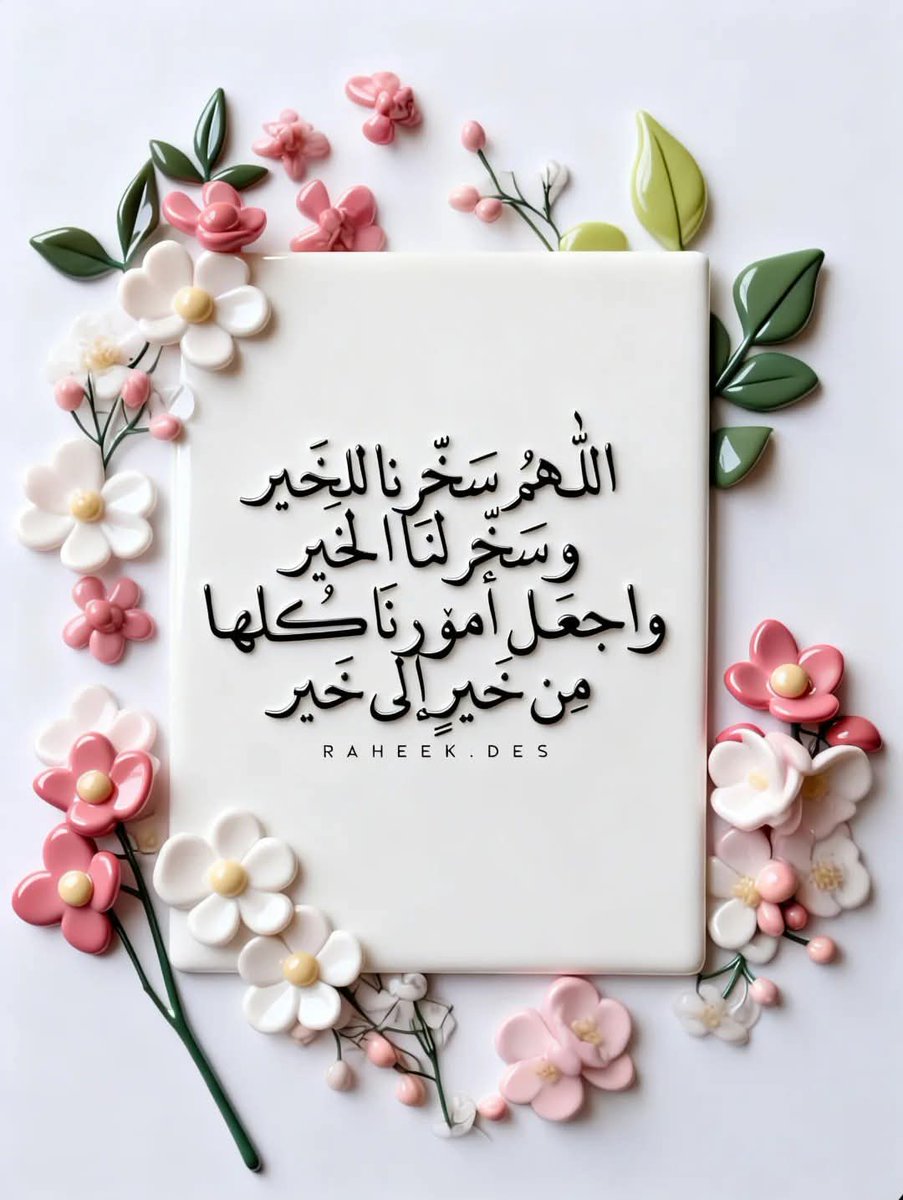 اللهمُ سَخّرنا للخَير
وسَخّر لنَا الخير
واجعَل أمورنَا كُلها
مِن خَيرٍ إلى خَير
RAHEEK.DES